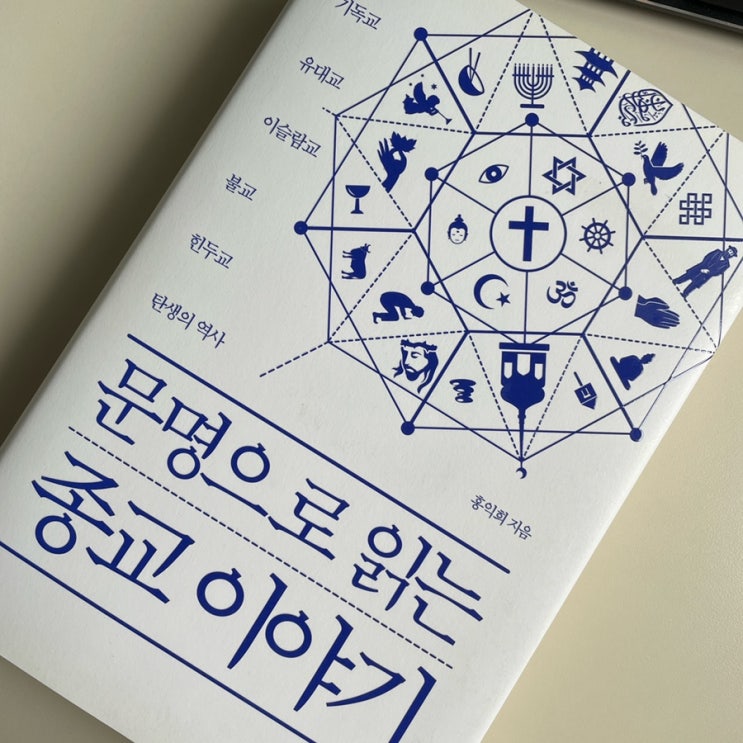 기독교
유대교
이슬람교
불교
힌두교
탄생의 역사
문명으로 읽는
종교 이야기
홍익희 지음